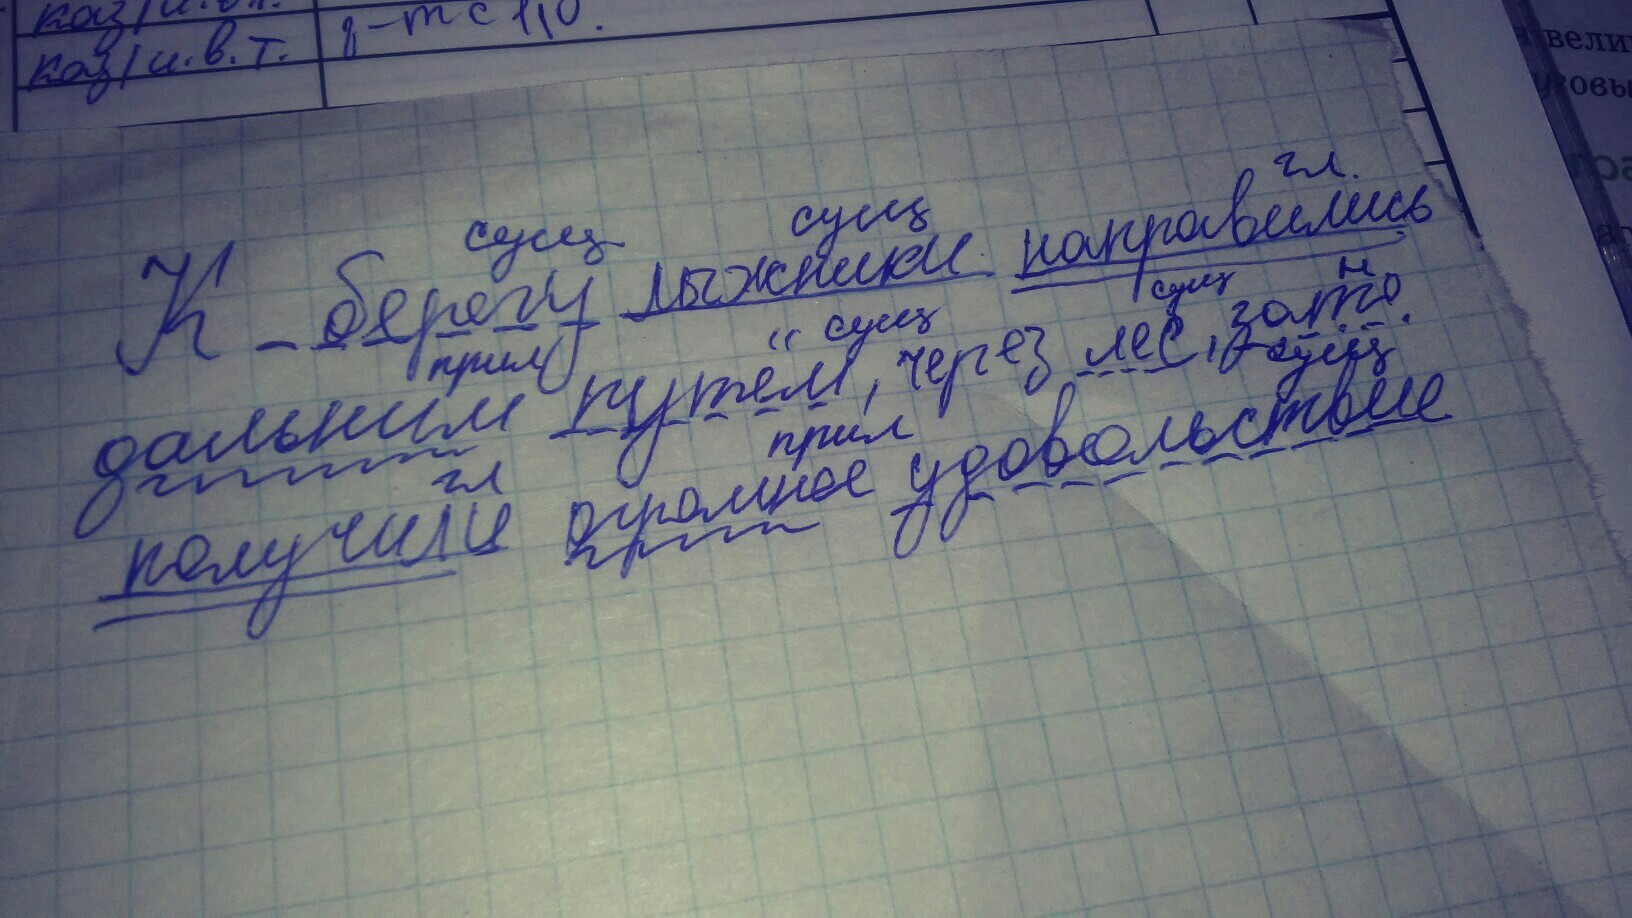 каз/и.в.т.
каз/и.в.т.
сущ сущ гл.
К берегу лыжники направились
прил сущ сущ н
дальним путём, через лес, зато
гл прил сущ
получили огромное удовольствие